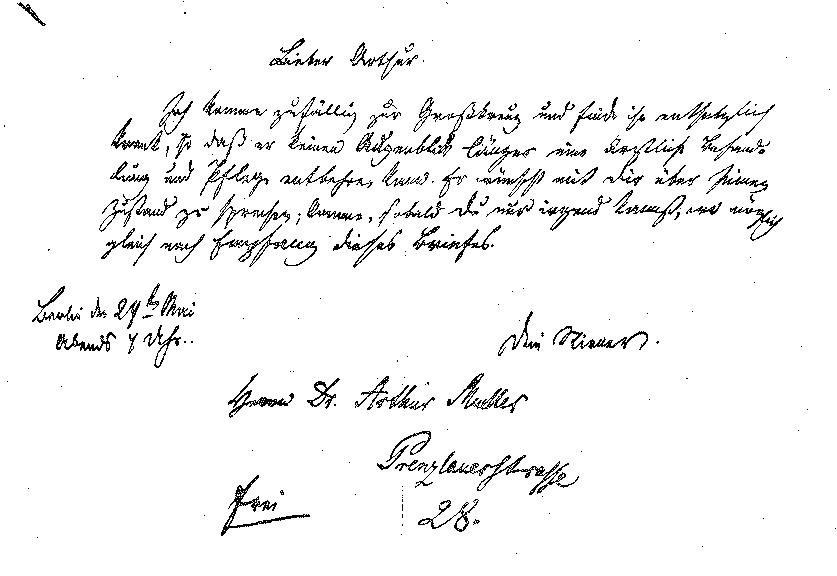 Lieber Arthur.
Ich komme zufällig zur Großkreuz und finde ihn entsetzlich
krank, so daß er keinen Augenblick länger eine ärztliche Behand-
lung und Pflege entbehren kann. Er wünscht mit Dir über seinen
Zustand zu sprechen; komme, sobald Du nur irgend kannst, wo möglich
gleich nach Empfang dieses Briefes.
Berlin den 24 Mai
Abends 7 Uhr..
Dein
Herrn Dr. Arthur Müller
Prenzlauerstrasse
28.
frei